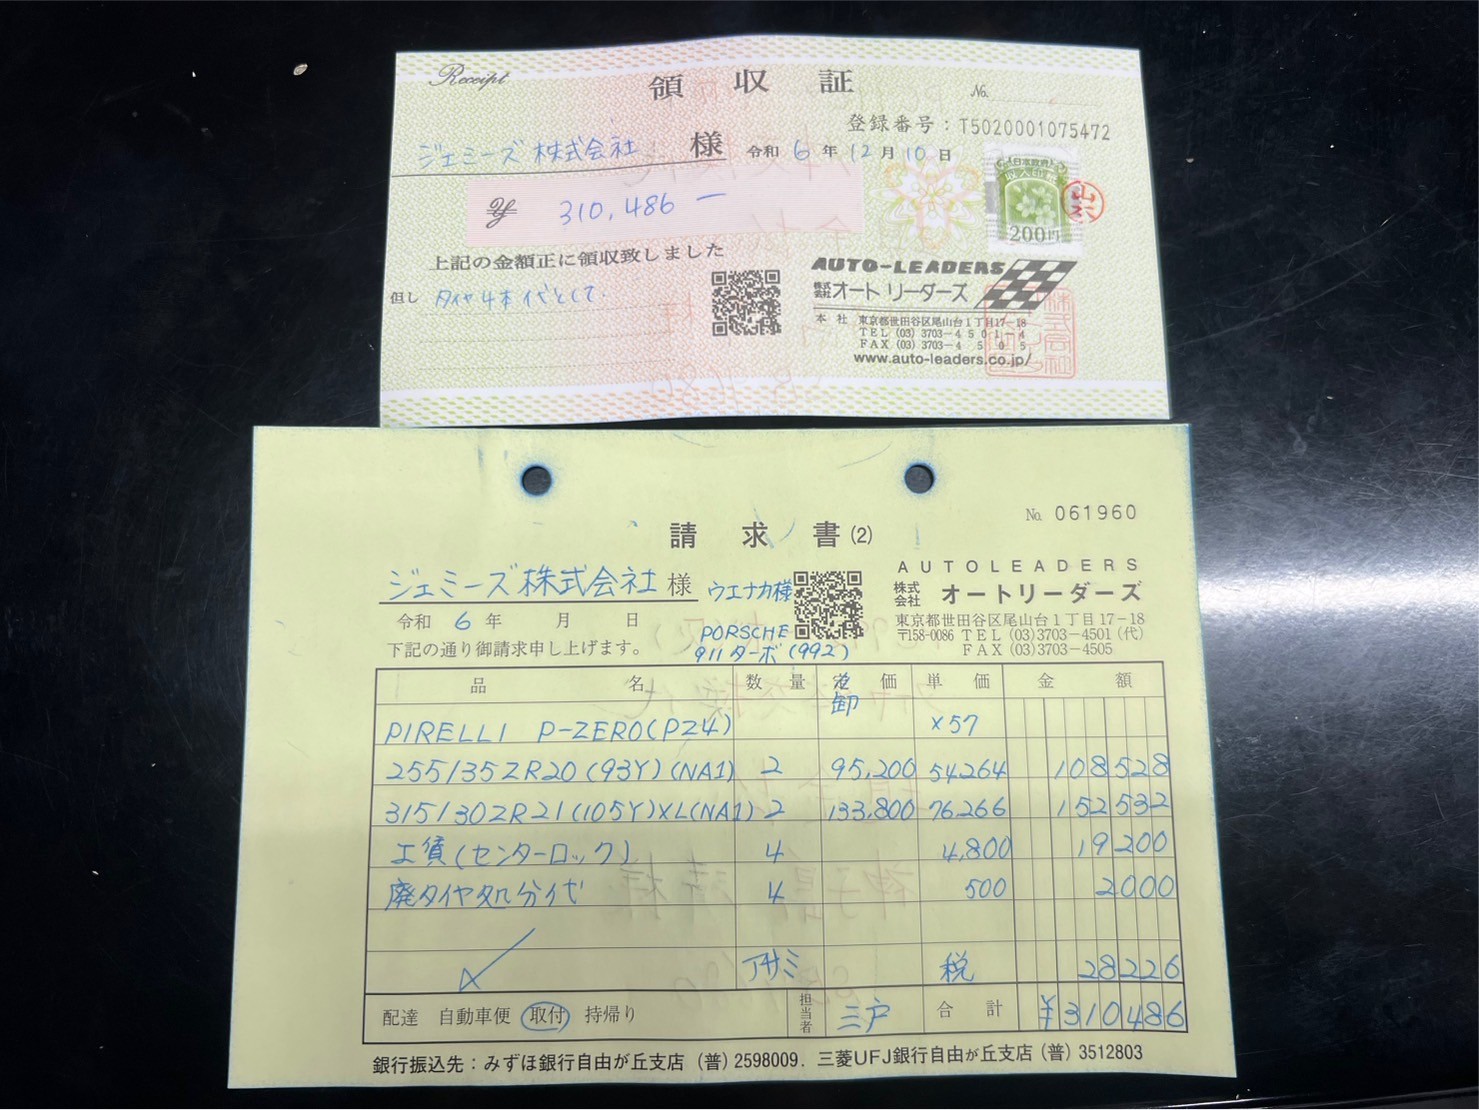 Receipt
領収証
No.
登録番号：T5020001075472
ジェミーズ株式会社 様
令和 6 年 12 月 10 日
¥ 310,486 ー
日本政府
収入印紙
200円
山六
上記の金額正に領収致しました
但し タイヤ4本代として.
AUTO-LEADERS
株式会社 オートリーダーズ
本社 東京都世田谷区尾山台1丁目17-18
TEL (03) 3703-4501-4
FAX (03) 3703-4505
www.auto-leaders.co.jp/
No. 061960
請求書(2)
AUTOLEADERS
株式会社 オートリーダーズ
東京都世田谷区尾山台1丁目17-18
〒158-0086 TEL (03)3703-4501(代)
FAX (03)3703-4505
ジェミーズ株式会社 様 ウエナカ様
令和 6 年 月 日
下記の通り御請求申し上げます。
PORSCHE
911ターボ(992)
品名 数量 定価 単価 金額
卸
PIRELLI P-ZERO(PZ4) ×57
255/35ZR20(93Y)(NA1) 2 95,200 54,264 108528
315/30ZR21(105Y)XL(NA1) 2 133,800 76,266 152532
工賃(センターロック) 4 4,800 19200
廃タイヤ処分代 4 500 2000
アサミ 税 28226
配達 自動車便 取付 持帰り 担当者 三戸 合計 ¥310486
銀行振込先：みずほ銀行自由が丘支店（普）2598009．三菱UFJ銀行自由が丘支店（普）3512803